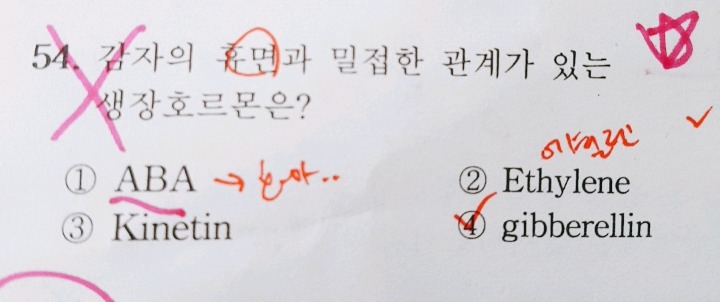 54. 감자의 휴면과 밀접한 관계가 있는
생장호르몬은?
에틸렌
① ABA → 눈아..
② Ethylene
③ Kinetin
④ gibberellin